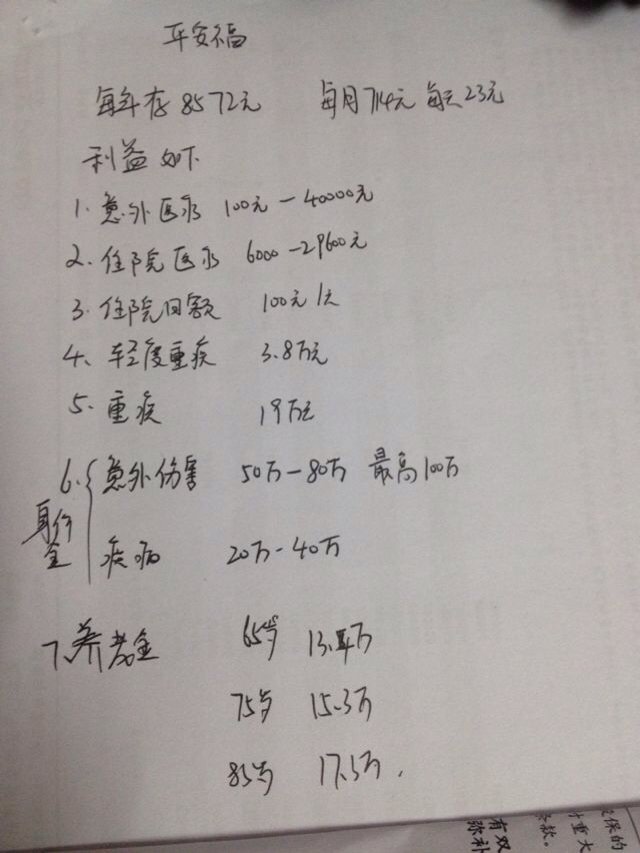 平安福
每年存8572元 每月714元 每天23元
利益如下
1. 意外医疗 100元-40000元
2. 住院医疗 6000-29600元
3. 住院日额 100元/天
4. 轻度重疾 3.8万元
5. 重疾 19万元
6. 意外伤害 50万-80万 最高100万
身价金
疾病 20万-40万
7. 养老金 65岁 13.4万
75岁 15.3万
85岁 17.5万.
投保的
重大
条款。
有双
弥补